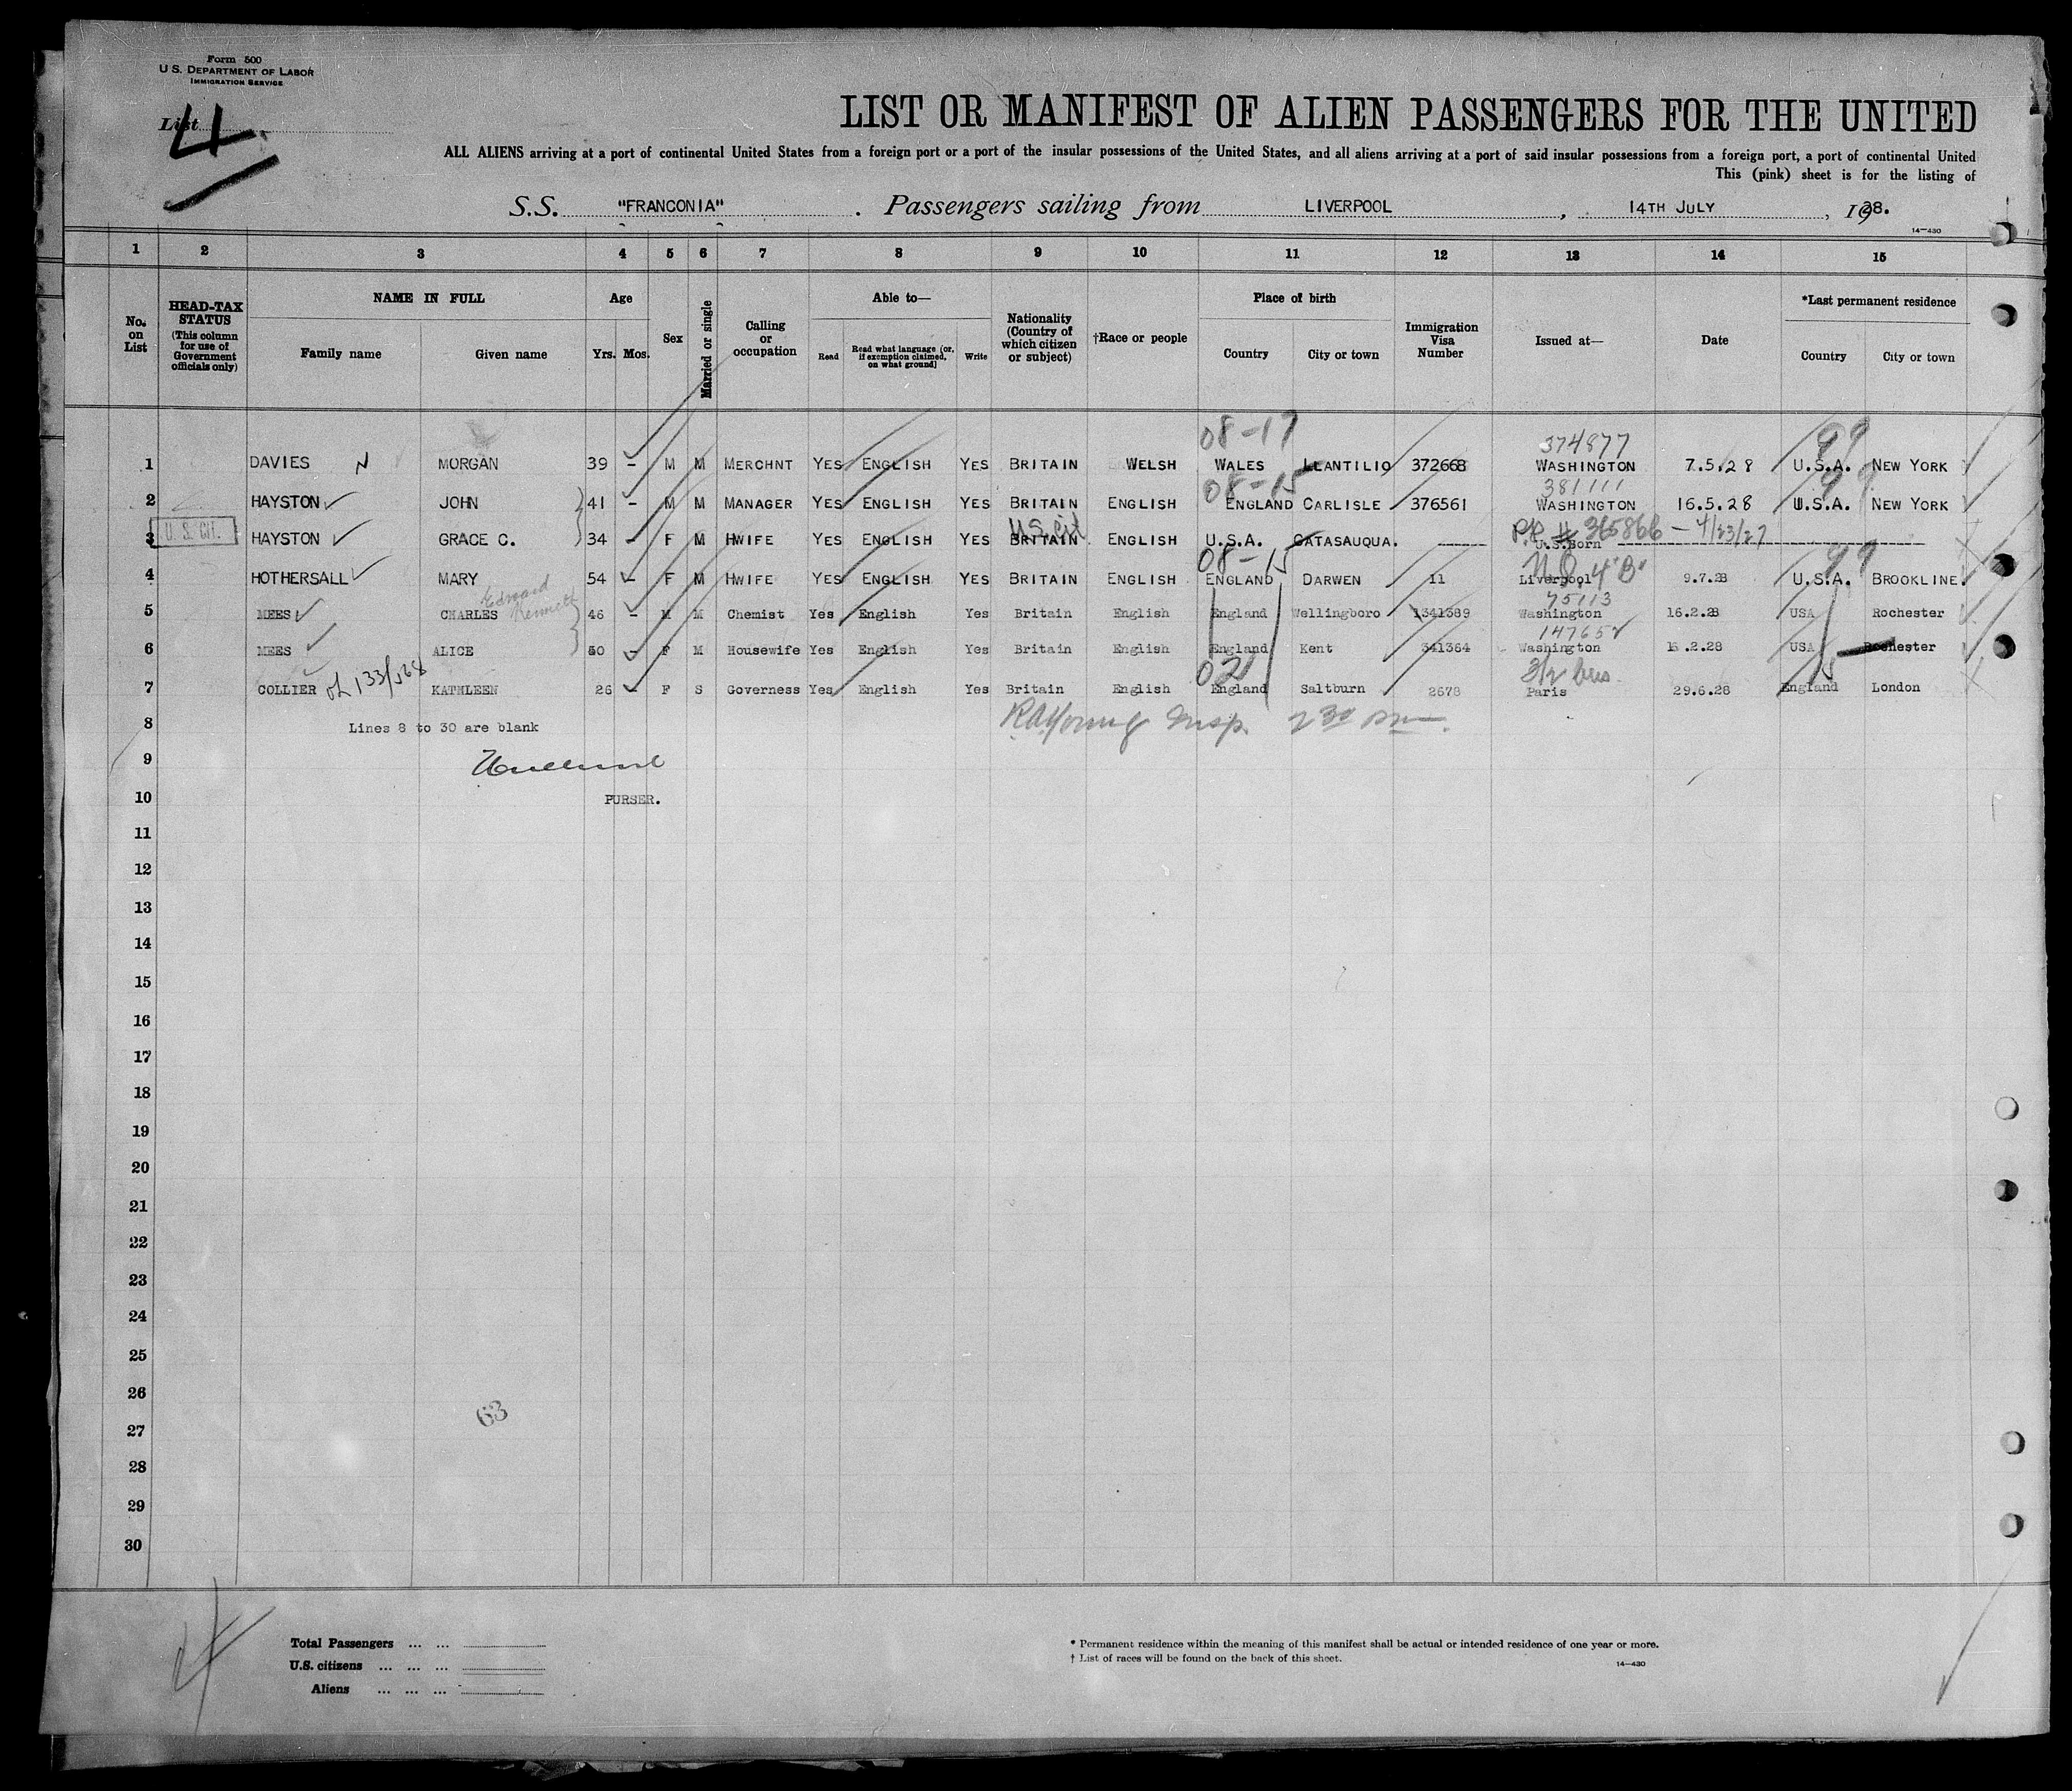 Form 500
U.S. DEPARTMENT OF LABOR
IMMIGRATION SERVICE
List 4
LIST OR MANIFEST OF ALIEN PASSENGERS FOR THE UNITED
ALL ALIENS arriving at a port of continental United States from a foreign port or a port of the insular possessions of the United States, and all aliens arriving at a port of said insular possessions from a foreign port, a port of continental United
This (pink) sheet is for the listing of
S.S. "FRANCONIA". Passengers sailing from LIVERPOOL, 14TH JULY, 1928.
14—430
1 2 3 4 5 6 7 8 9 10 11 12 13 14 15
No. on List
HEAD-TAX STATUS (This column for use of Government officials only)
NAME IN FULL
Family name Given name
Age
Yrs. Mos.
Sex
Married or single
Calling or occupation
Able to—
Read Read what language (or, if exemption claimed, on what ground) Write
Nationality (Country of which citizen or subject)
†Race or people
Place of birth
Country City or town
Immigration Visa Number
Issued at—
Date
*Last permanent residence
Country City or town
08-17 374877 99
1 DAVIES N MORGAN 39 - M M MERCHNT YES ENGLISH YES BRITAIN WELSH WALES LLANTILIO 372668 WASHINGTON 7.5.28 U.S.A. NEW YORK
08-15 381111 99
2 HAYSTON JOHN 41 - M M MANAGER YES ENGLISH YES BRITAIN ENGLISH ENGLAND CARLISLE 376561 WASHINGTON 16.5.28 U.S.A. NEW YORK
U. S. CIT. U.S. Cit PP # 365866 - 4/23/27
3 HAYSTON GRACE C. 34 - F M HWIFE YES ENGLISH YES BRITAIN ENGLISH U.S.A. CATASAUQUA. U.S.Born
08-15 99
4 HOTHERSALL MARY 54 - F M HWIFE YES ENGLISH YES BRITAIN ENGLISH ENGLAND DARWEN 11 Liverpool 9.7.28 U.S.A. BROOKLINE.
Edward Kenneth 75113
5 MEES CHARLES 46 - M M Chemist Yes English Yes Britain English England Wellingboro 1341389 Washington 16.2.28 USA Rochester
14765
6 MEES ALICE 50 - F M Housewife Yes English Yes Britain English England Kent 341364 Washington .2.28 USA Rochester
021 3/2
7 COLLIER KATHLEEN 26 - F S Governess Yes English Yes Britain English England Saltburn 2678 Paris 29.6.28 England London
8 Lines 8 to 30 are blank
Insp. 2 30 pm
9
10 PURSER.
11
12
13
14
15
16
17
18
19
20
21
22
23
24
25
26
63
27
28
29
30
4
Total Passengers ... ...
U.S. citizens ... ... ...
Aliens ... ... ...
* Permanent residence within the meaning of this manifest shall be actual or intended residence of one year or more.
† List of races will be found on the back of this sheet.
14—430